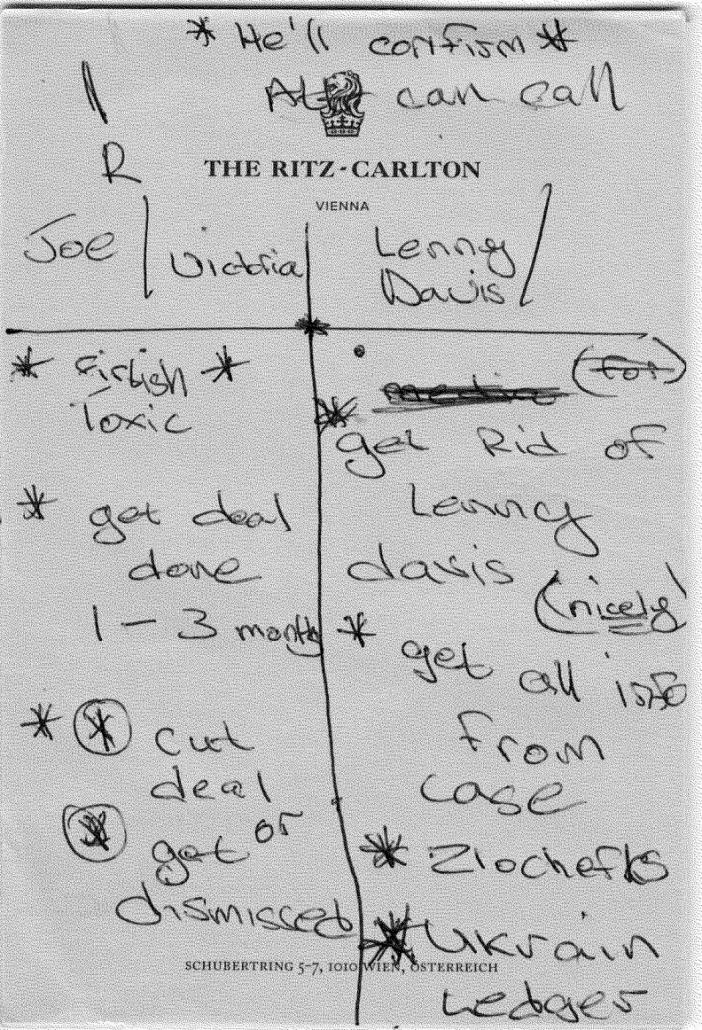 * He'll confism *
can call
R
THE RITZ-CARLTON
VIENNA
Joe / Victoria
Lenny
Davis /
* Firtish *
Toxic
* get deal
done
1 - 3 months
* * cut
deal
* get or
dismissed
(for)
* get Rid of
Lenny
davis
(nicely)
* get all info
from
case
* Zlochefks
* Ukrain
Ledger
SCHUBERTRING 5-7, 1010 WIEN, ÖSTERREICH